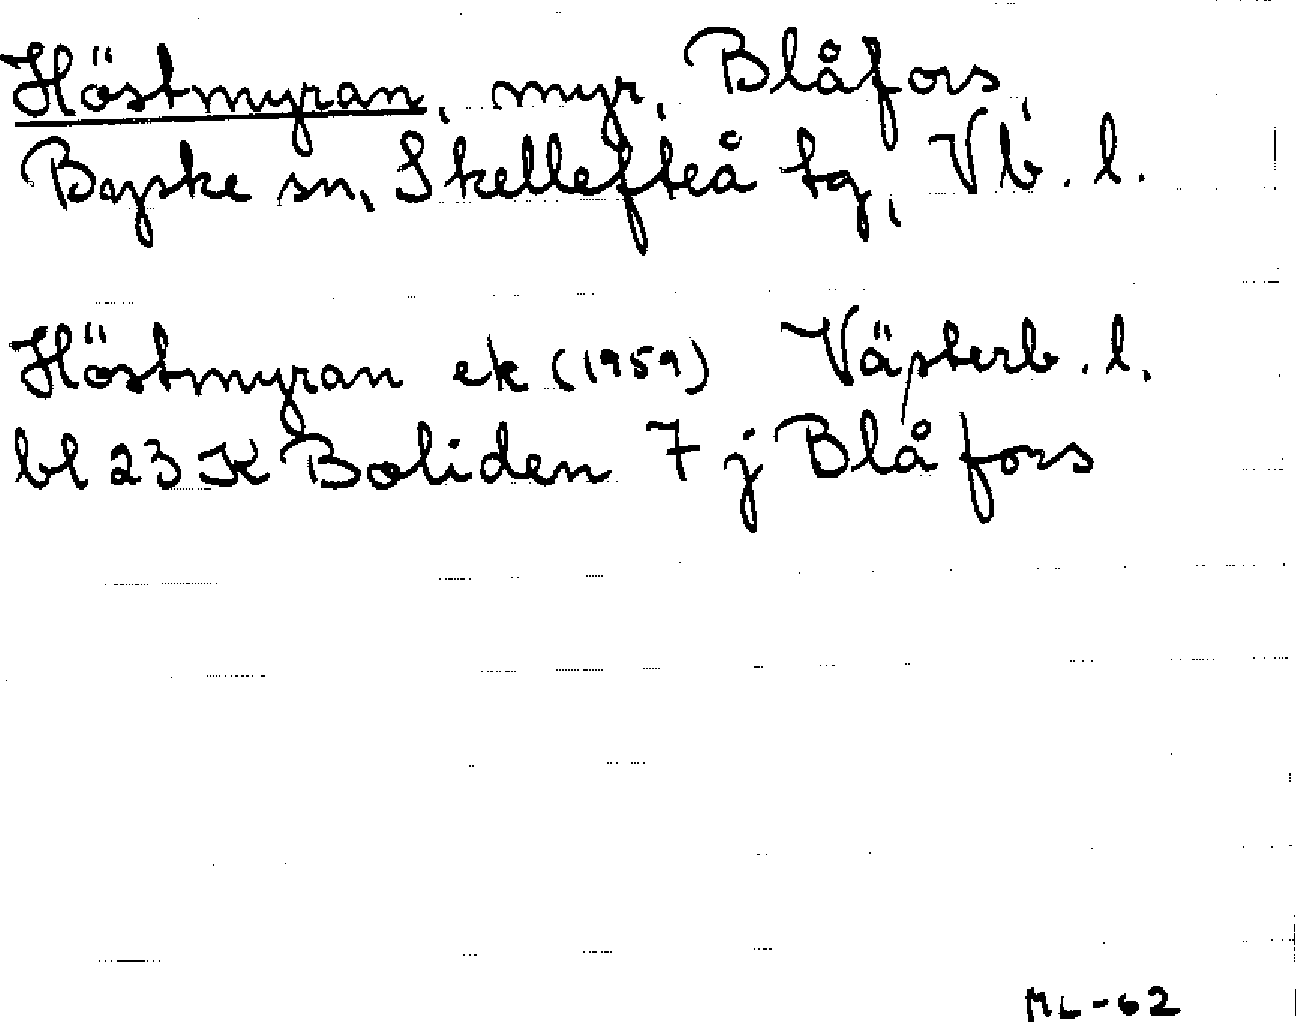 Höstmyran, myr, Blåfors,
Byske sn, Skellefteå tg, Vb. l.
Höstmyran ek (1959) Västerb. l.
bl 23 K Boliden 7 j Blåfors
ML-62